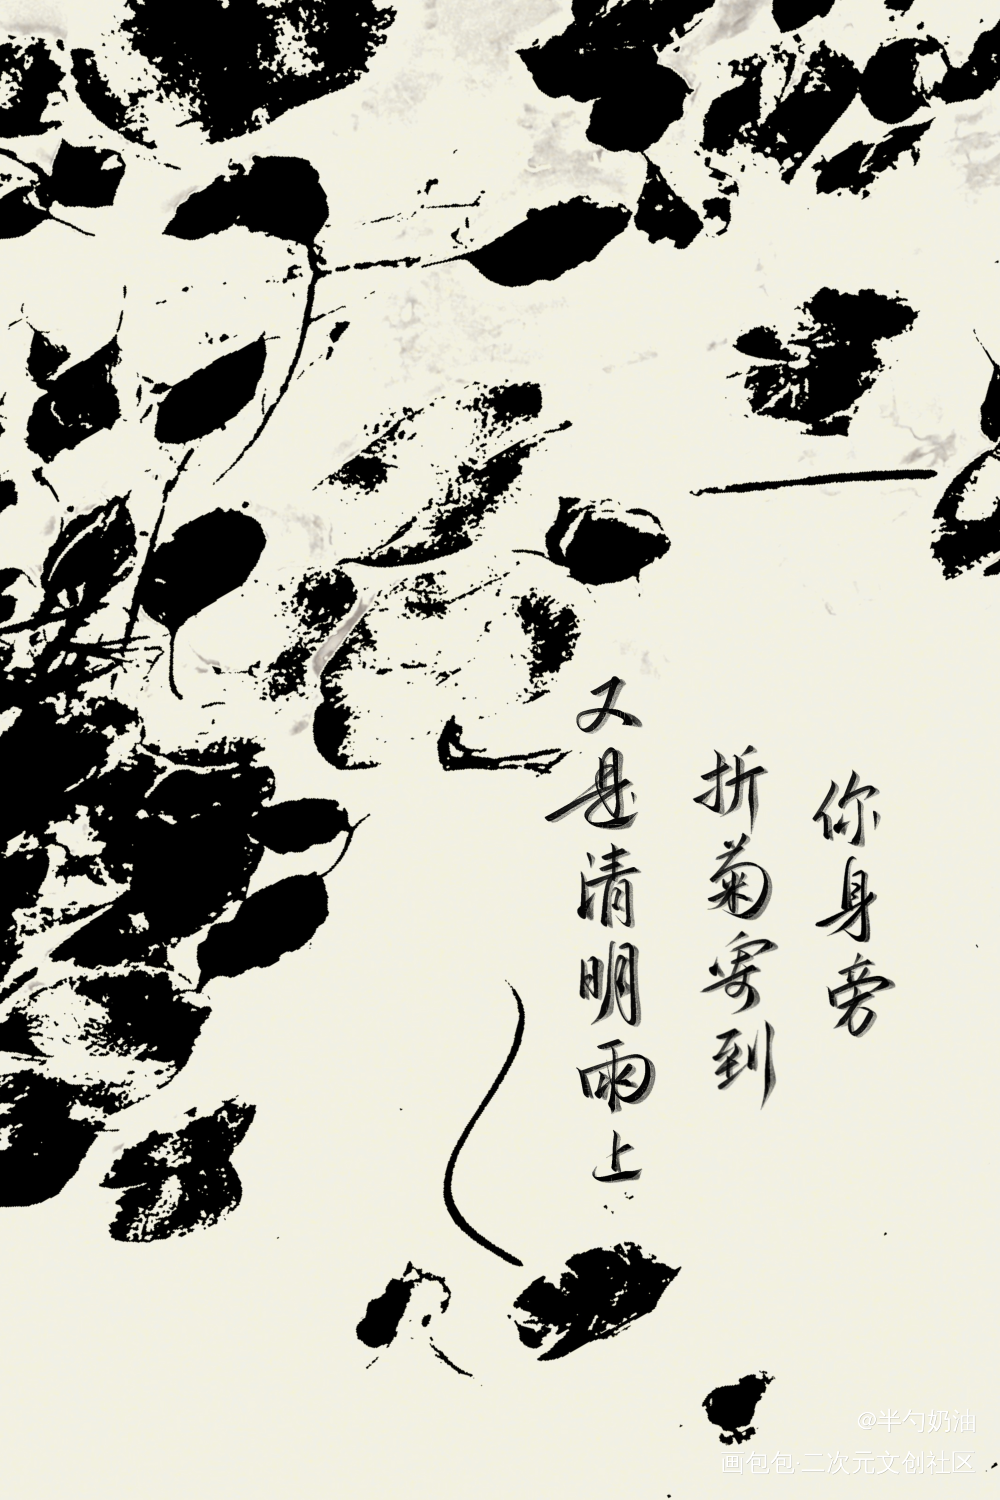 你身旁
折菊寄到
又是清明雨上
@半勺奶油
画包包·二次元文创社区